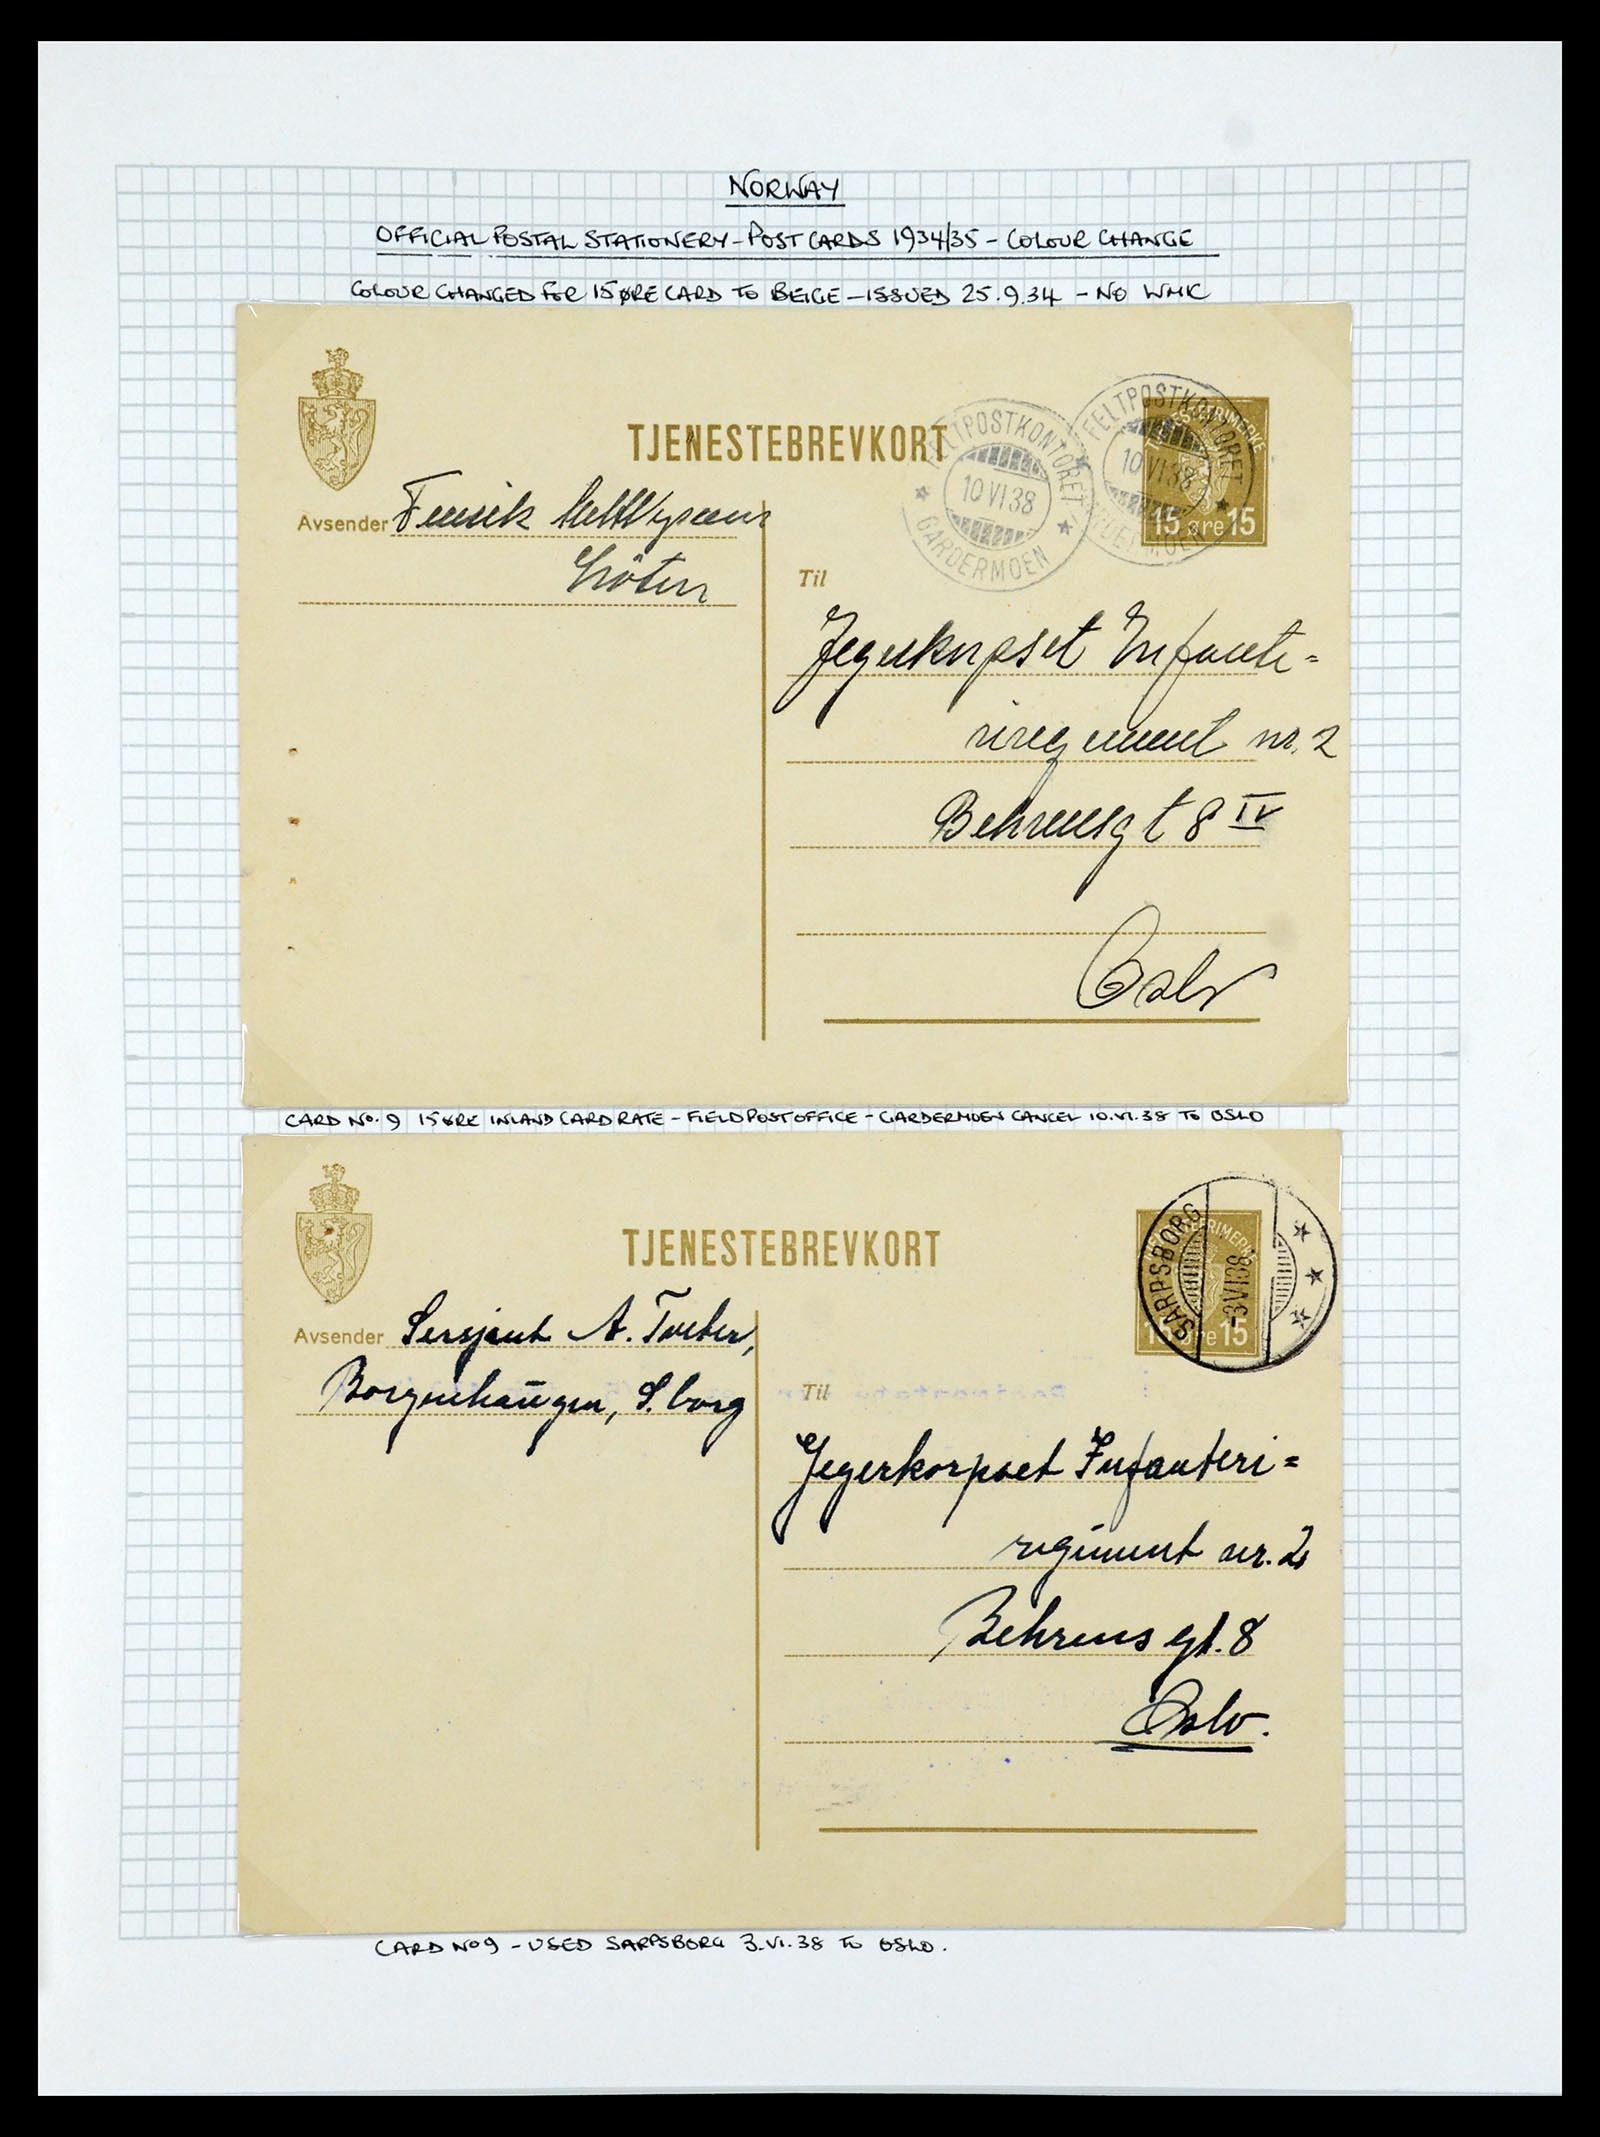 NORWAY
OFFICIAL POSTAL STATIONERY - POST CARDS 1934/35 - COLOUR CHANGE
COLOUR CHANGED FOR 15 ØRE CARD TO BEIGE - ISSUED 25.9.34 - NO WMK
TJENESTEBREVKORT
FELTPOSTKONTORET
10 VI 38
GARDERMOEN
FELTPOSTKONTORET
10 VI 38
GARDERMOEN
15 øre 15
Avsender Fenrik
Til
Jegerkorpset Infante=
riregiment nr. 2
Behrensgt 8 IV
Oslo
CARD No. 9 15 ØRE INLAND CARD RATE - FIELD POST OFFICE - GARDERMOEN CANCEL 10.VI.38 TO OSLO
TJENESTEBREVKORT
SARPSBORG
-3 VI 38
15 øre 15
Avsender Sersjant A. Tveter,
Borgenhaugen, S.borg
Til
Jegerkorpset Infanteri=
regiment nr. 2
Behrens gt. 8
Oslo.
CARD No 9 - USED SARPSBORG 3.VI.38 TO OSLO.